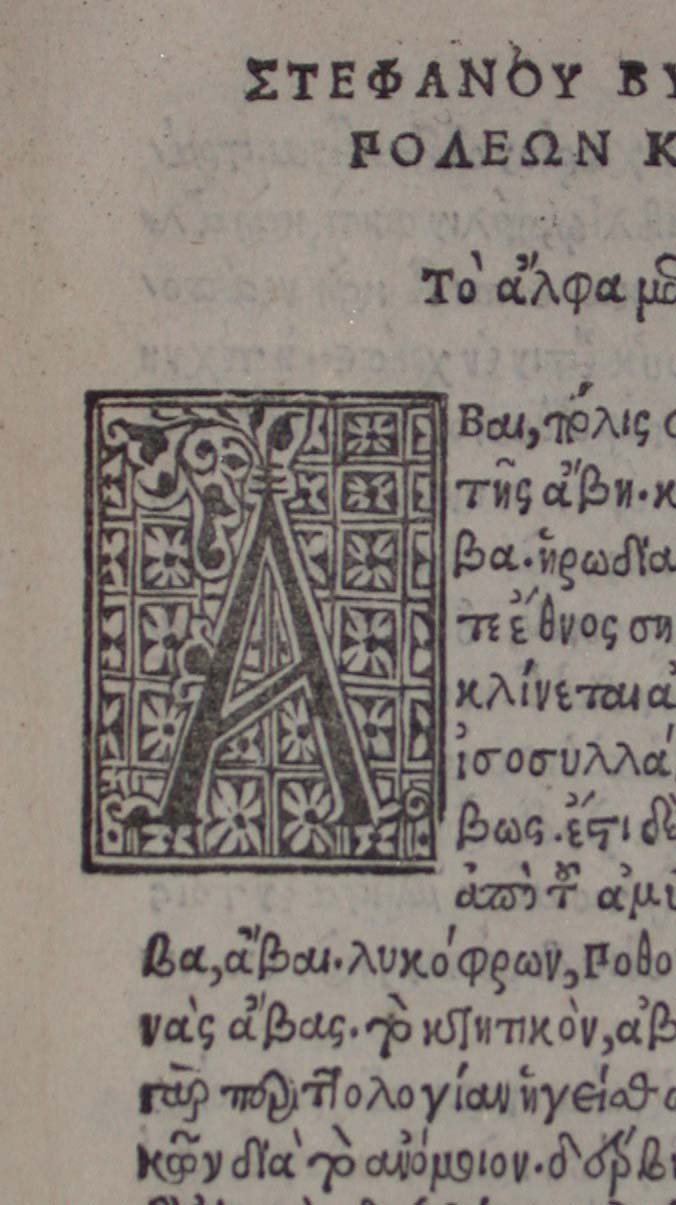 ΣΤΕΦΑΝΟΥ ΒΥ
ΠΟΛΕΩΝ Κ
Τὸ ἄλφα
ΑΒαι, πόλις
τῆς ἄβη. κ
βα. ἡρωδια
τε ἔθνος ση
κλίνεται ἀ
ἰσοσυλλά
βως. ἔστι δὲ
ἀπὸ τοῦ ἀμύ
βα, ἄβαι. λυκόφρων,
νὰς ἄβας. τὸ κτητικὸν, ἀβ
γὰρ ἡγεῖσθ
κῶν διὰ τὸ ἀνόμοιον.